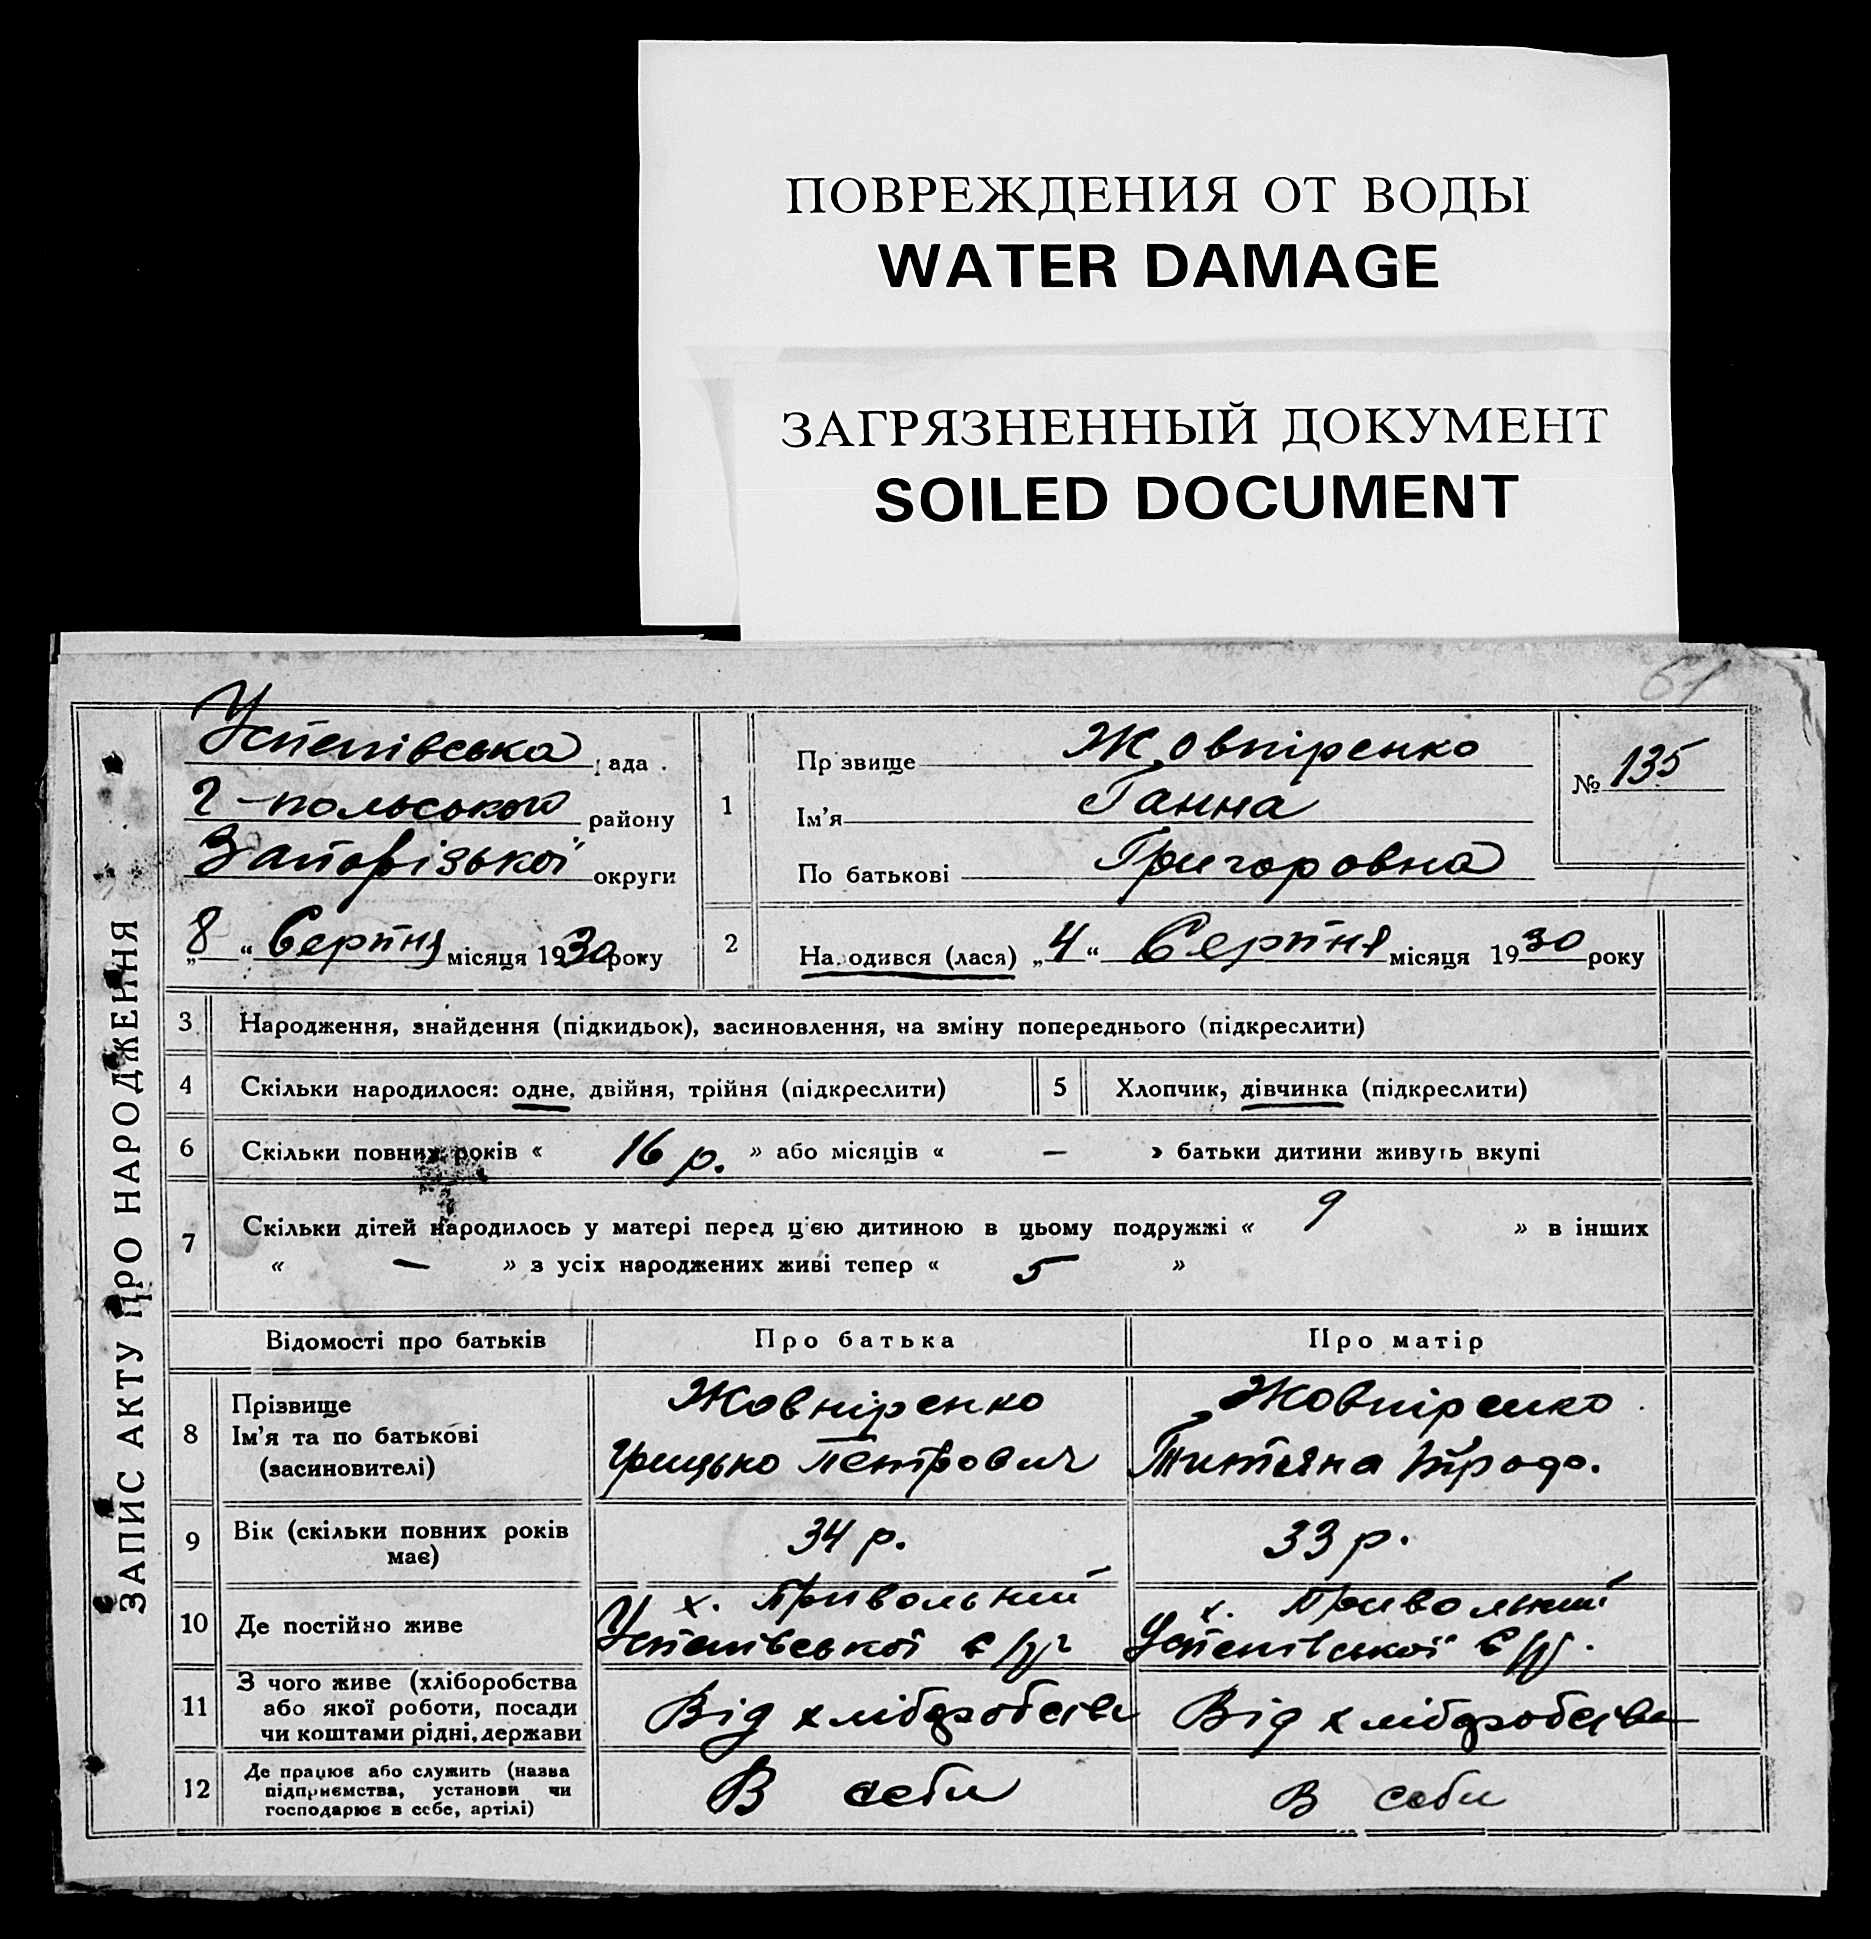 ПОВРЕЖДЕНИЯ ОТ ВОДЫ
WATER DAMAGE
ЗАГРЯЗНЕННЫЙ ДОКУМЕНТ
SOILED DOCUMENT
61
ЗАПИС АКТУ ПРО НАРОДЖЕННЯ
Успенівська рада
Г-польського району
Запорізької округи
„8“ Серпня місяця 1930 року
1
Прізвище Жовпіренко
Ім'я Ганна
По батькові Григоровна
№ 135
2 Народився (лася) „4“ Серпня місяця 1930 року
3 Народження, знайдення (підкидьок), засиновлення, на зміну попереднього (підкреслити)
4 Скільки народилося: одне, двійня, трійня (підкреслити) 5 Хлопчик, дівчинка (підкреслити)
6 Скільки повних років « 16 р. » або місяців « — » батьки дитини живуть вкупі
7 Скільки дітей народилось у матері перед цією дитиною в цьому подружжі « 9 » в інших
« — » з усіх народжених живі тепер « 5 »
Відомості про батьків Про батька Про матір
8 Прізвище
Ім'я та по батькові
(засиновителі)
Жовпіренко
Грицько Петрович
Жовпіренко
Титяна
9 Вік (скільки повних років
має)
34 р. 33 р.
10 Де постійно живе
х. Привольний
Успенівської с/р
х. Привольний
Успенівської с/р.
11 З чого живе (хліборобства
або якої роботи, посади
чи коштами рідні, держави
Від хліборобства Від хліборобства
12 Де працює або служить (назва
підприємства, установи чи
господарює в себе, артілі)
В себи В себи